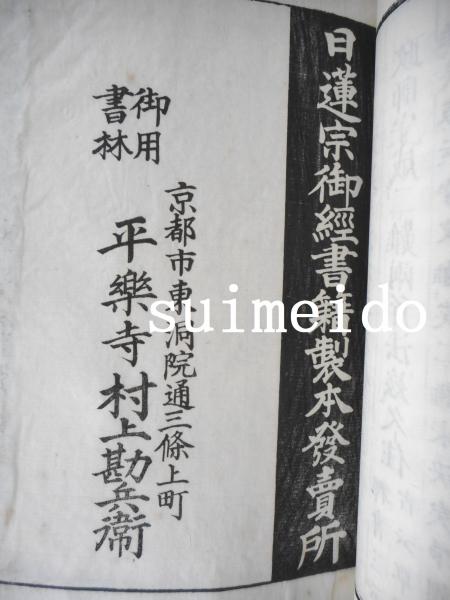 日蓮宗御經書籍製本發賣所
京都市東洞院通三條上町
御用
書林
平樂寺村上勘兵衞
suimeido